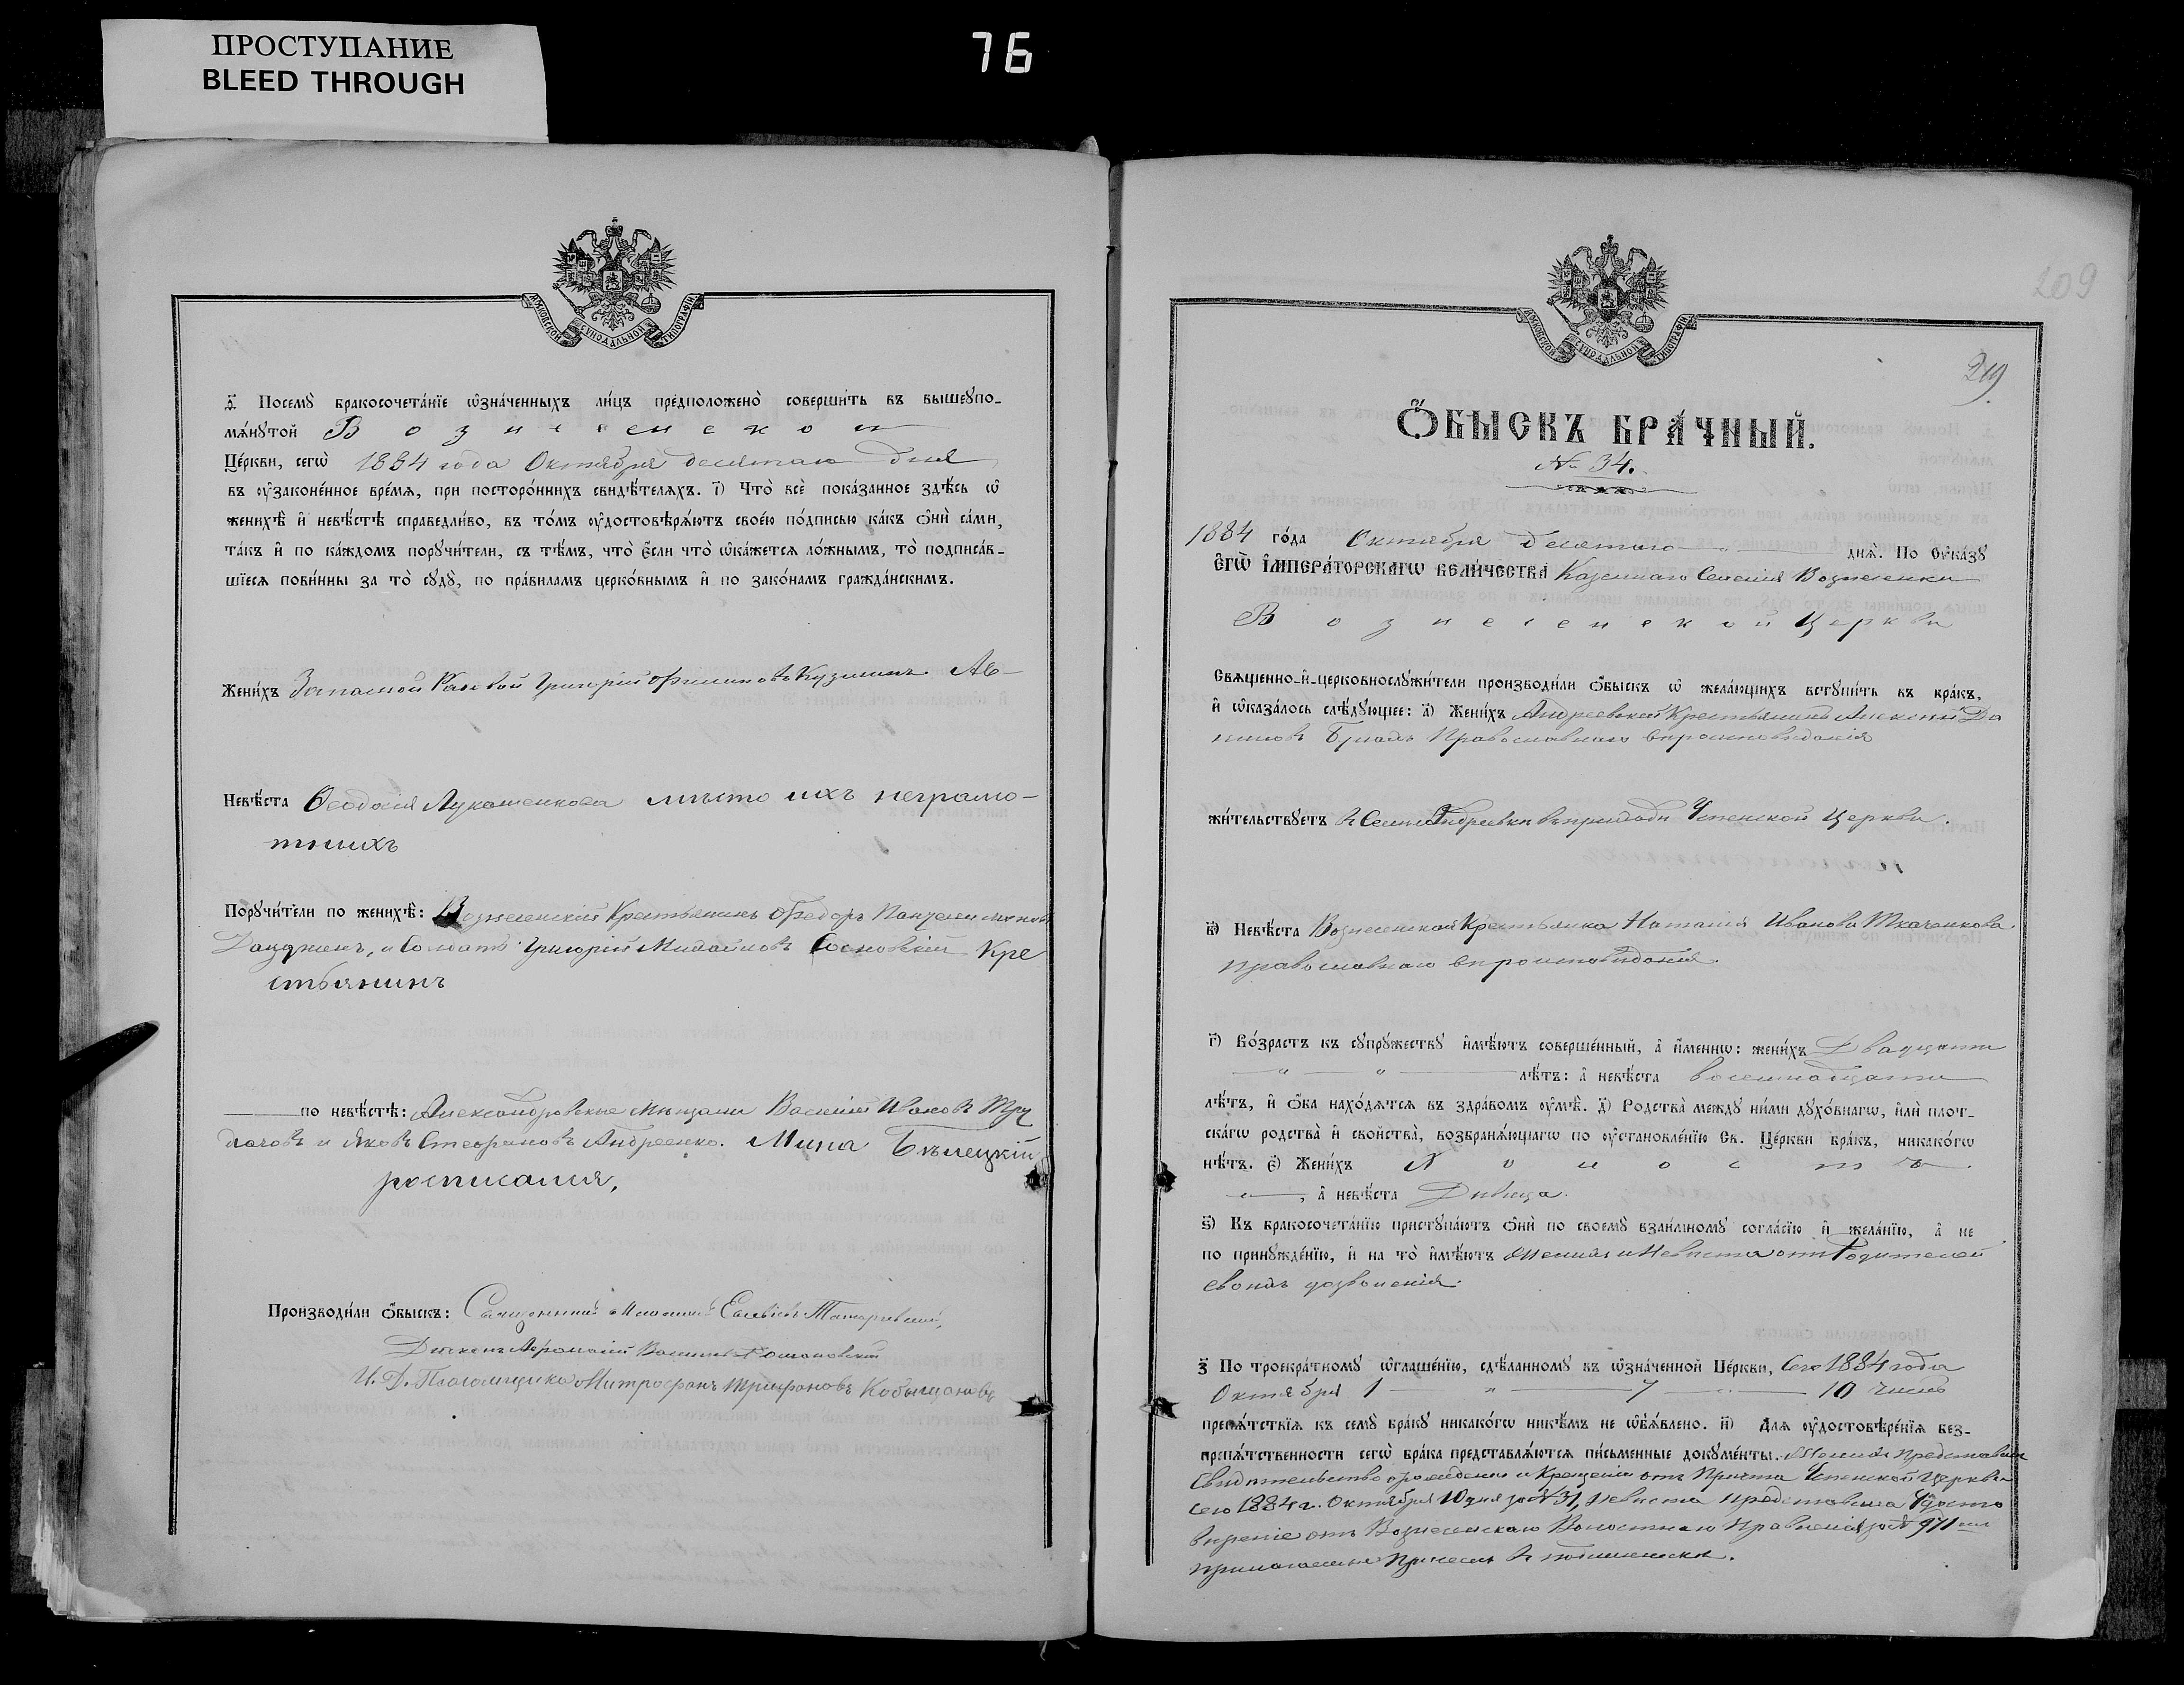 ПРОСТУПАНИЕ
BLEED THROUGH
76
з҃. Посемꙋ̀ бракосочета́нїе ѡ҆зна́ченныхъ ли́цъ предположено̀ соверши́ть въ вышеꙋпо-
мѧ́нꙋтой Вознесенской
Це́ркви, сегѡ̀ 1884 года Октября десятаго дня
въ ᲂу҆зако́ненное вре́мѧ, при посторо́ннихъ свидѣ́телѧхъ. і҃) Что̀ всѐ пока́занное здѣ́сь ѡ҆
женихѣ̀ и҆ невѣ́стѣ справедли́во, въ то́мъ ᲂу҆достовѣрѧ́ютъ свое́ю по́дписью ка́къ ѻ҆нѝ са́ми,
та́къ и҆ по ка́ждомъ порꙋчи́тели, съ тѣ́мъ, что̀ є҆́сли что̀ ѡ҆ка́жетсѧ ло́жнымъ, то̀ подписа́в-
шїесѧ пови́нны за то̀ сꙋдꙋ̀, по пра́виламъ церко́внымъ и҆ по зако́намъ гражда́нскимъ.
Жени́хъ Запасной Рядовой Григорій Филиповъ Кузминъ Ав-
Невѣ́ста Ѳеодосія Лукашенкова мѣсто ихъ неграмо-
тнихъ
Порꙋчи́тели по женихѣ̀: Вознесенскій Крестьянинъ Федоръ Пантелимоновъ
и Солдатъ Григорій Михайловъ Сосновскій Кре
стьянинъ
по невѣ́стѣ: Александровскіе мѣщани Василій Ивановъ
и Яковъ Стефановъ Андреенко. Мина Бѣлецкій
росписался,
Производи́ли ѻ҆́быскъ: Священникъ
Діаконъ Афанасій
И. Д. Псаломщика Митрофанъ Трифоновъ Кобыщановъ
209
209
Ѻ҆́БЫСКЪ БРА́ЧНЫЙ.
№ 34.
1884 го́да Октября десятаго днѧ̀. По Оу҆ка́зꙋ
Є҆гѡ̀ І҆мпера́торскагѡ вели́чества Казеннаго Селенія Вознесенки
Вознесенской Церкви
Свѧщенно-и҆-церковнослꙋжи́тели производи́ли ѻ҆́быскъ ѡ҆ жела́ющихъ встꙋпи́ть въ бра́къ,
и҆ ѡ҆каза́лось слѣ́дꙋющее: а҃) Жени́хъ Андреевскій Крестьянинъ Алексій Да
ниловъ Православнаго вѣроисповѣданія
жи́тельствꙋетъ в Селѣ Андреевки въ приходѣ Успенской Церкви.
в҃) Невѣ́ста Вознесенская Крестьянка Наталія Иванова Ткаченкова
православнаго вѣроисповѣданія.
г҃) Во́зрастъ къ сꙋпрꙋ́жествꙋ и҆мѣ́ютъ соверше́нный, а҆ и҆́меннѡ: жени́хъ Двадцати
лѣ́тъ: а҆ невѣ́ста восемнадцати
лѣ́тъ, и҆ ѻ҆́ба нахо́дѧтсѧ въ здра́вомъ ᲂу҆мѣ̀. д҃) Родства̀ междꙋ ни́ми дꙋхо́внагѡ, и҆лѝ пло́т-
скагѡ родства̀ и҆ сво́йства, возбранѧ́ющагѡ по ᲂу҆становле́нїю Св. Це́ркви бра́къ, никако́гѡ
нѣ́тъ. є҃) Жени́хъ Холостъ
, а҆ невѣ́ста Дѣвица.
ѕ҃) Къ бракосочета́нїю пристꙋпа́ютъ ѻ҆нѝ по своемꙋ̀ взаи́мномꙋ согла́сїю и҆ жела́нїю, а҆ не
по принꙋжде́нїю, и҆ на то̀ и҆мѣ́ютъ Жених и Невѣста отъ Родителей
своихъ дозволенія.
з҃ По троекра́тномꙋ ѡ҆глаше́нїю, сдѣ́ланномꙋ въ ѡ҆зна́ченной Це́ркви, Сего 1884 года
Октября 1 7 10 числъ
препѧ́тствїѧ къ семꙋ̀ бра́кꙋ никако́гѡ никѣ́мъ не ѡ҆б̾ѧ́влено. и҃) Длѧ ᲂу҆достовѣре́нїѧ без-
препѧ́тственности сегѡ̀ бра́ка представлѧ́ютсѧ пи́сьменные докꙋме́нты. Жених представилъ
Свидѣтельство о рожденіи и Крещеніи отъ Причта Успенской Церкви
сего 1884 г. Октября 10 дня за № 31, невѣста представила Удосто
вѣреніе отъ Вознесенскаго Волостнаго Правленія за № 971